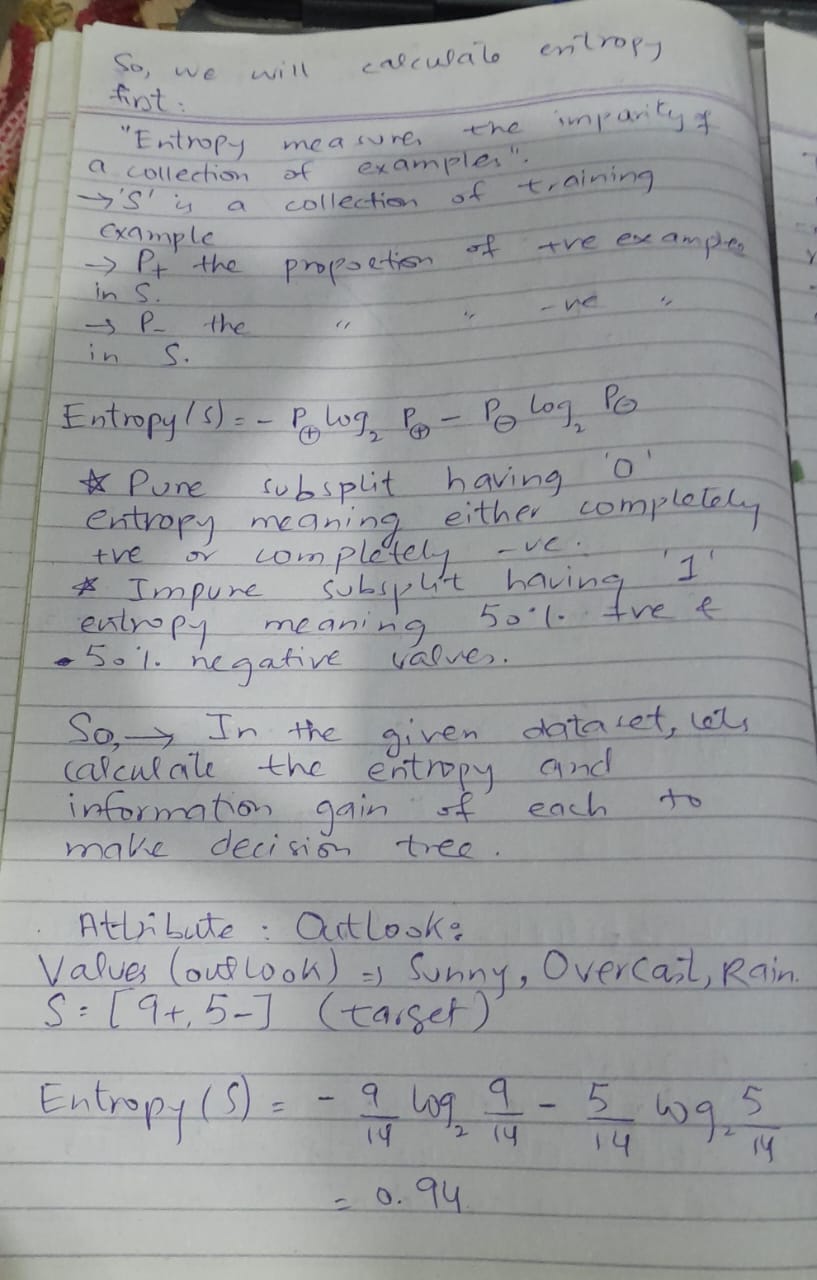 So, we will calculate entropy
first:
"Entropy measures the imparity of
a collection of examples".
→ 'S' is a collection of training
example
→ P+ the proportion of +ve examples
in S.
→ P- the " " -ve "
in S.
Entropy(S) = - P⊕ log₂ P⊕ - P⊖ log₂ P⊖
* Pure subsplit having '0'
entropy meaning either completely
+ve or completely -ve.
* Impure subsplit having '1'
entropy meaning 50% +ve &
50% negative values.
So, → In the given dataset, lets
calculate the entropy and
information gain of each to
make decision tree.
Attribute : Outlook:
Values (outlook) => Sunny, Overcast, Rain.
S = [9+, 5-] (target)
Entropy(S) = - 9/14 log₂ 9/14 - 5/14 log₂ 5/14
= 0.94